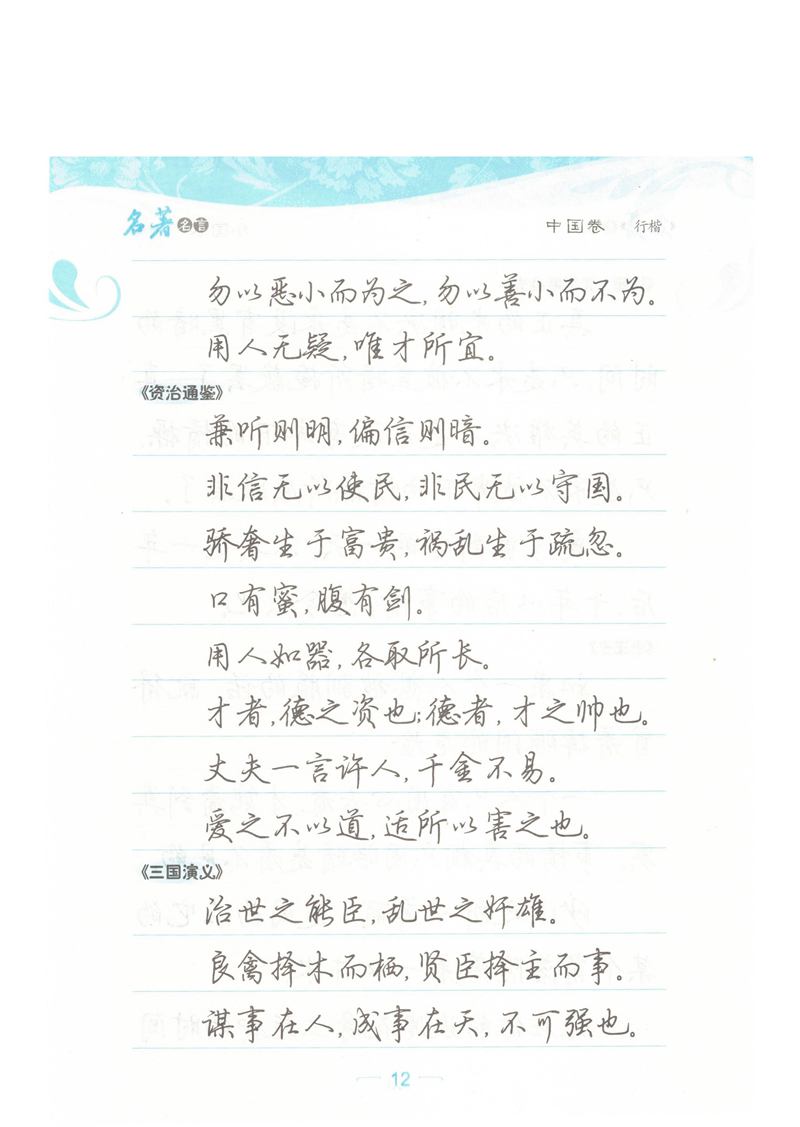 名著名言
中国卷 行楷
勿以恶小而为之，勿以善小而不为。
用人无疑，唯才所宜。
《资治通鉴》
兼听则明，偏信则暗。
非信无以使民，非民无以守国。
骄奢生于富贵，祸乱生于疏忽。
口有蜜，腹有剑。
用人如器，各取所长。
才者，德之资也；德者，才之帅也。
丈夫一言许人，千金不易。
爱之不以道，适所以害之也。
《三国演义》
治世之能臣，乱世之奸雄。
良禽择木而栖，贤臣择主而事。
谋事在人，成事在天，不可强也。
12